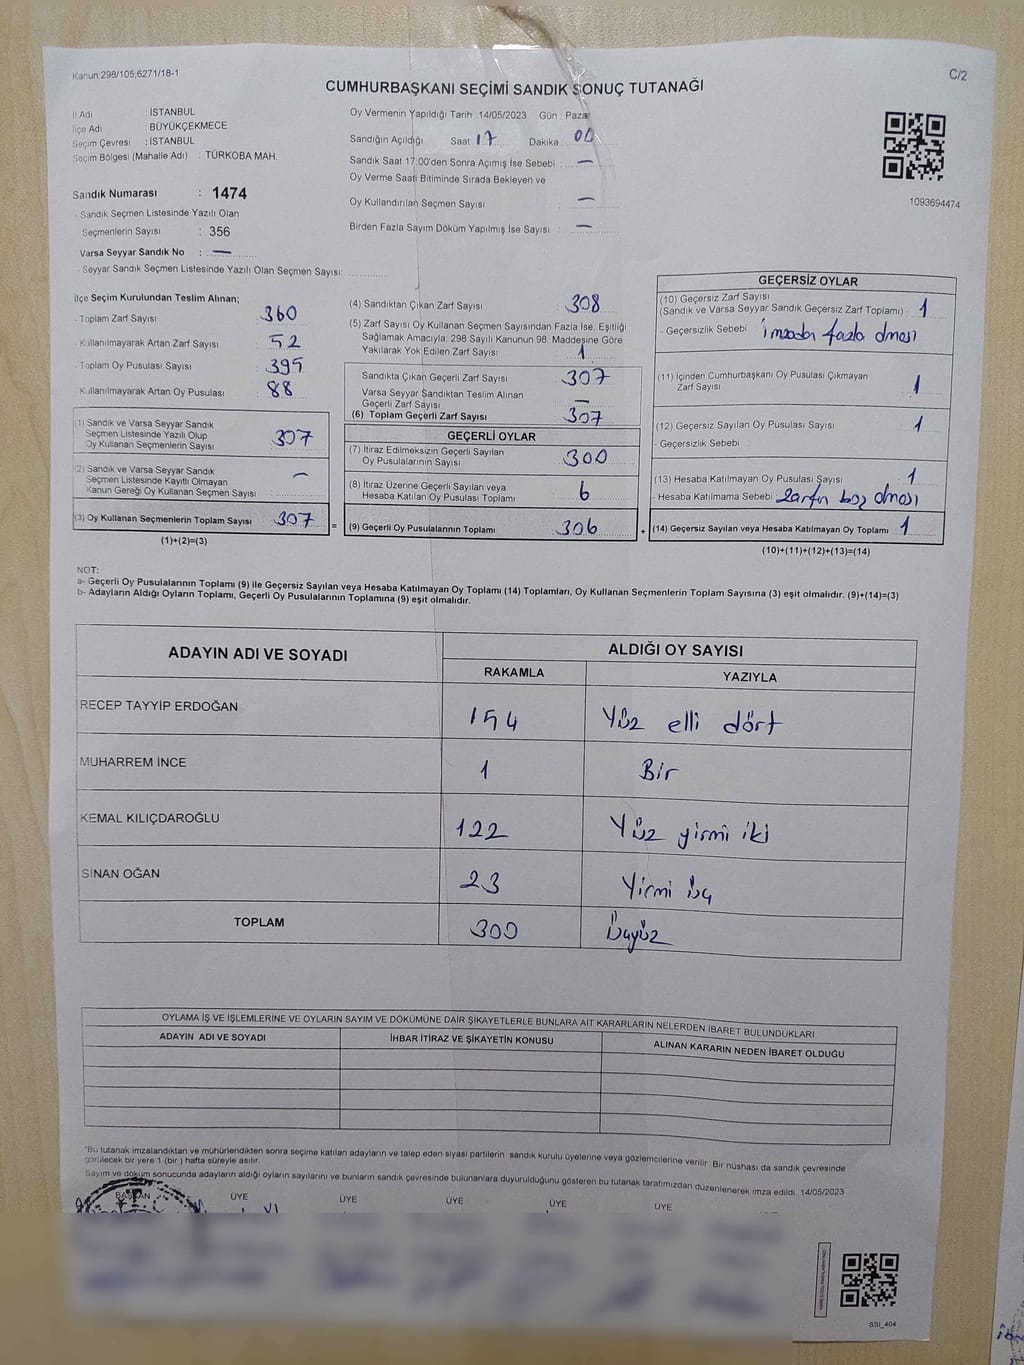 Kanun;298/105,6271/18-1
C/2
CUMHURBAŞKANI SEÇİMİ SANDIK SONUÇ TUTANAĞI
İl Adı : İSTANBUL
İlçe Adı : BÜYÜKÇEKMECE
Seçim Çevresi : İSTANBUL
Seçim Bölgesi (Mahalle Adı) : TÜRKOBA MAH.
Sandık Numarası : 1474
- Sandık Seçmen Listesinde Yazılı Olan
Seçmenlerin Sayısı : 356
Varsa Seyyar Sandık No : —
- Seyyar Sandık Seçmen Listesinde Yazılı Olan Seçmen Sayısı:
Oy Vermenin Yapıldığı Tarih : 14/05/2023 Gün : Pazar
Sandığın Açıldığı Saat 17 Dakika : 00
Sandık Saat 17:00'den Sonra Açımış İse Sebebi : —
Oy Verme Saati Bitiminde Sırada Bekleyen ve
Oy Kullandırılan Seçmen Sayısı —
Birden Fazla Sayım Döküm Yapılmış İse Sayısı : —
1093694474
İlçe Seçim Kurulundan Teslim Alınan;
- Toplam Zarf Sayısı : 360
- Kullanılmayarak Artan Zarf Sayısı : 52
- Toplam Oy Pusulası Sayısı : 395
- Kullanılmayarak Artan Oy Pusulası : 88
(1) Sandık ve Varsa Seyyar Sandık
Seçmen Listesinde Yazılı Olup
Oy Kullanan Seçmenlerin Sayısı : 307
(2) Sandık ve Varsa Seyyar Sandık
Seçmen Listesinde Kayıtlı Olmayan
Kanun Gereği Oy Kullanan Seçmen Sayısı : —
(3) Oy Kullanan Seçmenlerin Toplam Sayısı : 307 =
(1)+(2)=(3)
(4) Sandıktan Çıkan Zarf Sayısı : 308
(5) Zarf Sayısı Oy Kullanan Seçmen Sayısından Fazla İse, Eşitliği
Sağlamak Amacıyla; 298 Sayılı Kanunun 98. Maddesine Göre
Yakılarak Yok Edilen Zarf Sayısı : 1
Sandıkta Çıkan Geçerli Zarf Sayısı : 307
Varsa Seyyar Sandıktan Teslim Alınan
Geçerli Zarf Sayısı : —
(6) Toplam Geçerli Zarf Sayısı : 307
GEÇERLİ OYLAR
(7) İtiraz Edilmeksizin Geçerli Sayılan
Oy Pusulalarının Sayısı : 300
(8) İtiraz Üzerine Geçerli Sayılan veya
Hesaba Katılan Oy Pusulası Toplamı : 6
(9) Geçerli Oy Pusulalarının Toplamı : 306 +
GEÇERSİZ OYLAR
(10) Geçersiz Zarf Sayısı
(Sandık ve Varsa Seyyar Sandık Geçersiz Zarf Toplamı) : 1
- Geçersizlik Sebebi : imzadan fazla olması
(11) İçinden Cumhurbaşkanı Oy Pusulası Çıkmayan
Zarf Sayısı : 1
(12) Geçersiz Sayılan Oy Pusulası Sayısı : 1
- Geçersizlik Sebebi :
(13) Hesaba Katılmayan Oy Pusulası Sayısı : 1
- Hesaba Katılmama Sebebi : zarfın boş olması
(14) Geçersiz Sayılan veya Hesaba Katılmayan Oy Toplamı : 1
(10)+(11)+(12)+(13)=(14)
NOT:
a- Geçerli Oy Pusulalarının Toplamı (9) ile Geçersiz Sayılan veya Hesaba Katılmayan Oy Toplamı (14) Toplamları, Oy Kullanan Seçmenlerin Toplam Sayısına (3) eşit olmalıdır. (9)+(14)=(3)
b- Adayların Aldığı Oyların Toplamı, Geçerli Oy Pusulalarının Toplamına (9) eşit olmalıdır.
ADAYIN ADI VE SOYADI ALDIĞI OY SAYISI
RAKAMLA YAZIYLA
RECEP TAYYİP ERDOĞAN 154 Yüz elli dört
MUHARREM İNCE 1 Bir
KEMAL KILIÇDAROĞLU 122 Yüz yirmi iki
SİNAN OĞAN 23 Yirmi üç
TOPLAM 300 Üçyüz
OYLAMA İŞ VE İŞLEMLERİNE VE OYLARIN SAYIM VE DÖKÜMÜNE DAİR ŞİKAYETLERLE BUNLARA AİT KARARLARIN NELERDEN İBARET BULUNDUKLARI
ADAYIN ADI VE SOYADI İHBAR İTİRAZ VE ŞİKAYETİN KONUSU ALINAN KARARIN NEDEN İBARET OLDUĞU
*Bu tutanak imzalandıktan ve mühürlendikten sonra seçime katılan adayların ve talep eden siyasi partilerin sandık kurulu üyelerine veya gözlemcilerine verilir. Bir nüshası da sandık çevresinde
görülecek bir yere 1 (bir) hafta süreyle asılır.
Sayım ve döküm sonucunda adayların aldığı oyların sayılarını ve bunların sandık çevresinde bulunanlara duyurulduğunu gösteren bu tutanak tarafımızdan düzenlenerek imza edildi. 14/05/2023
BAŞKAN ÜYE ÜYE ÜYE ÜYE ÜYE
SSİ_404